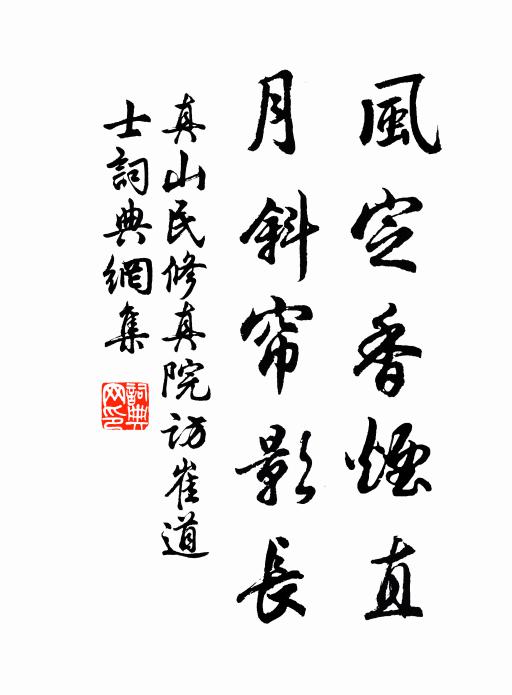 風定香煙直
月斜帘影長
真山民修真院訪崔道
士詞典網集
詞典
网印